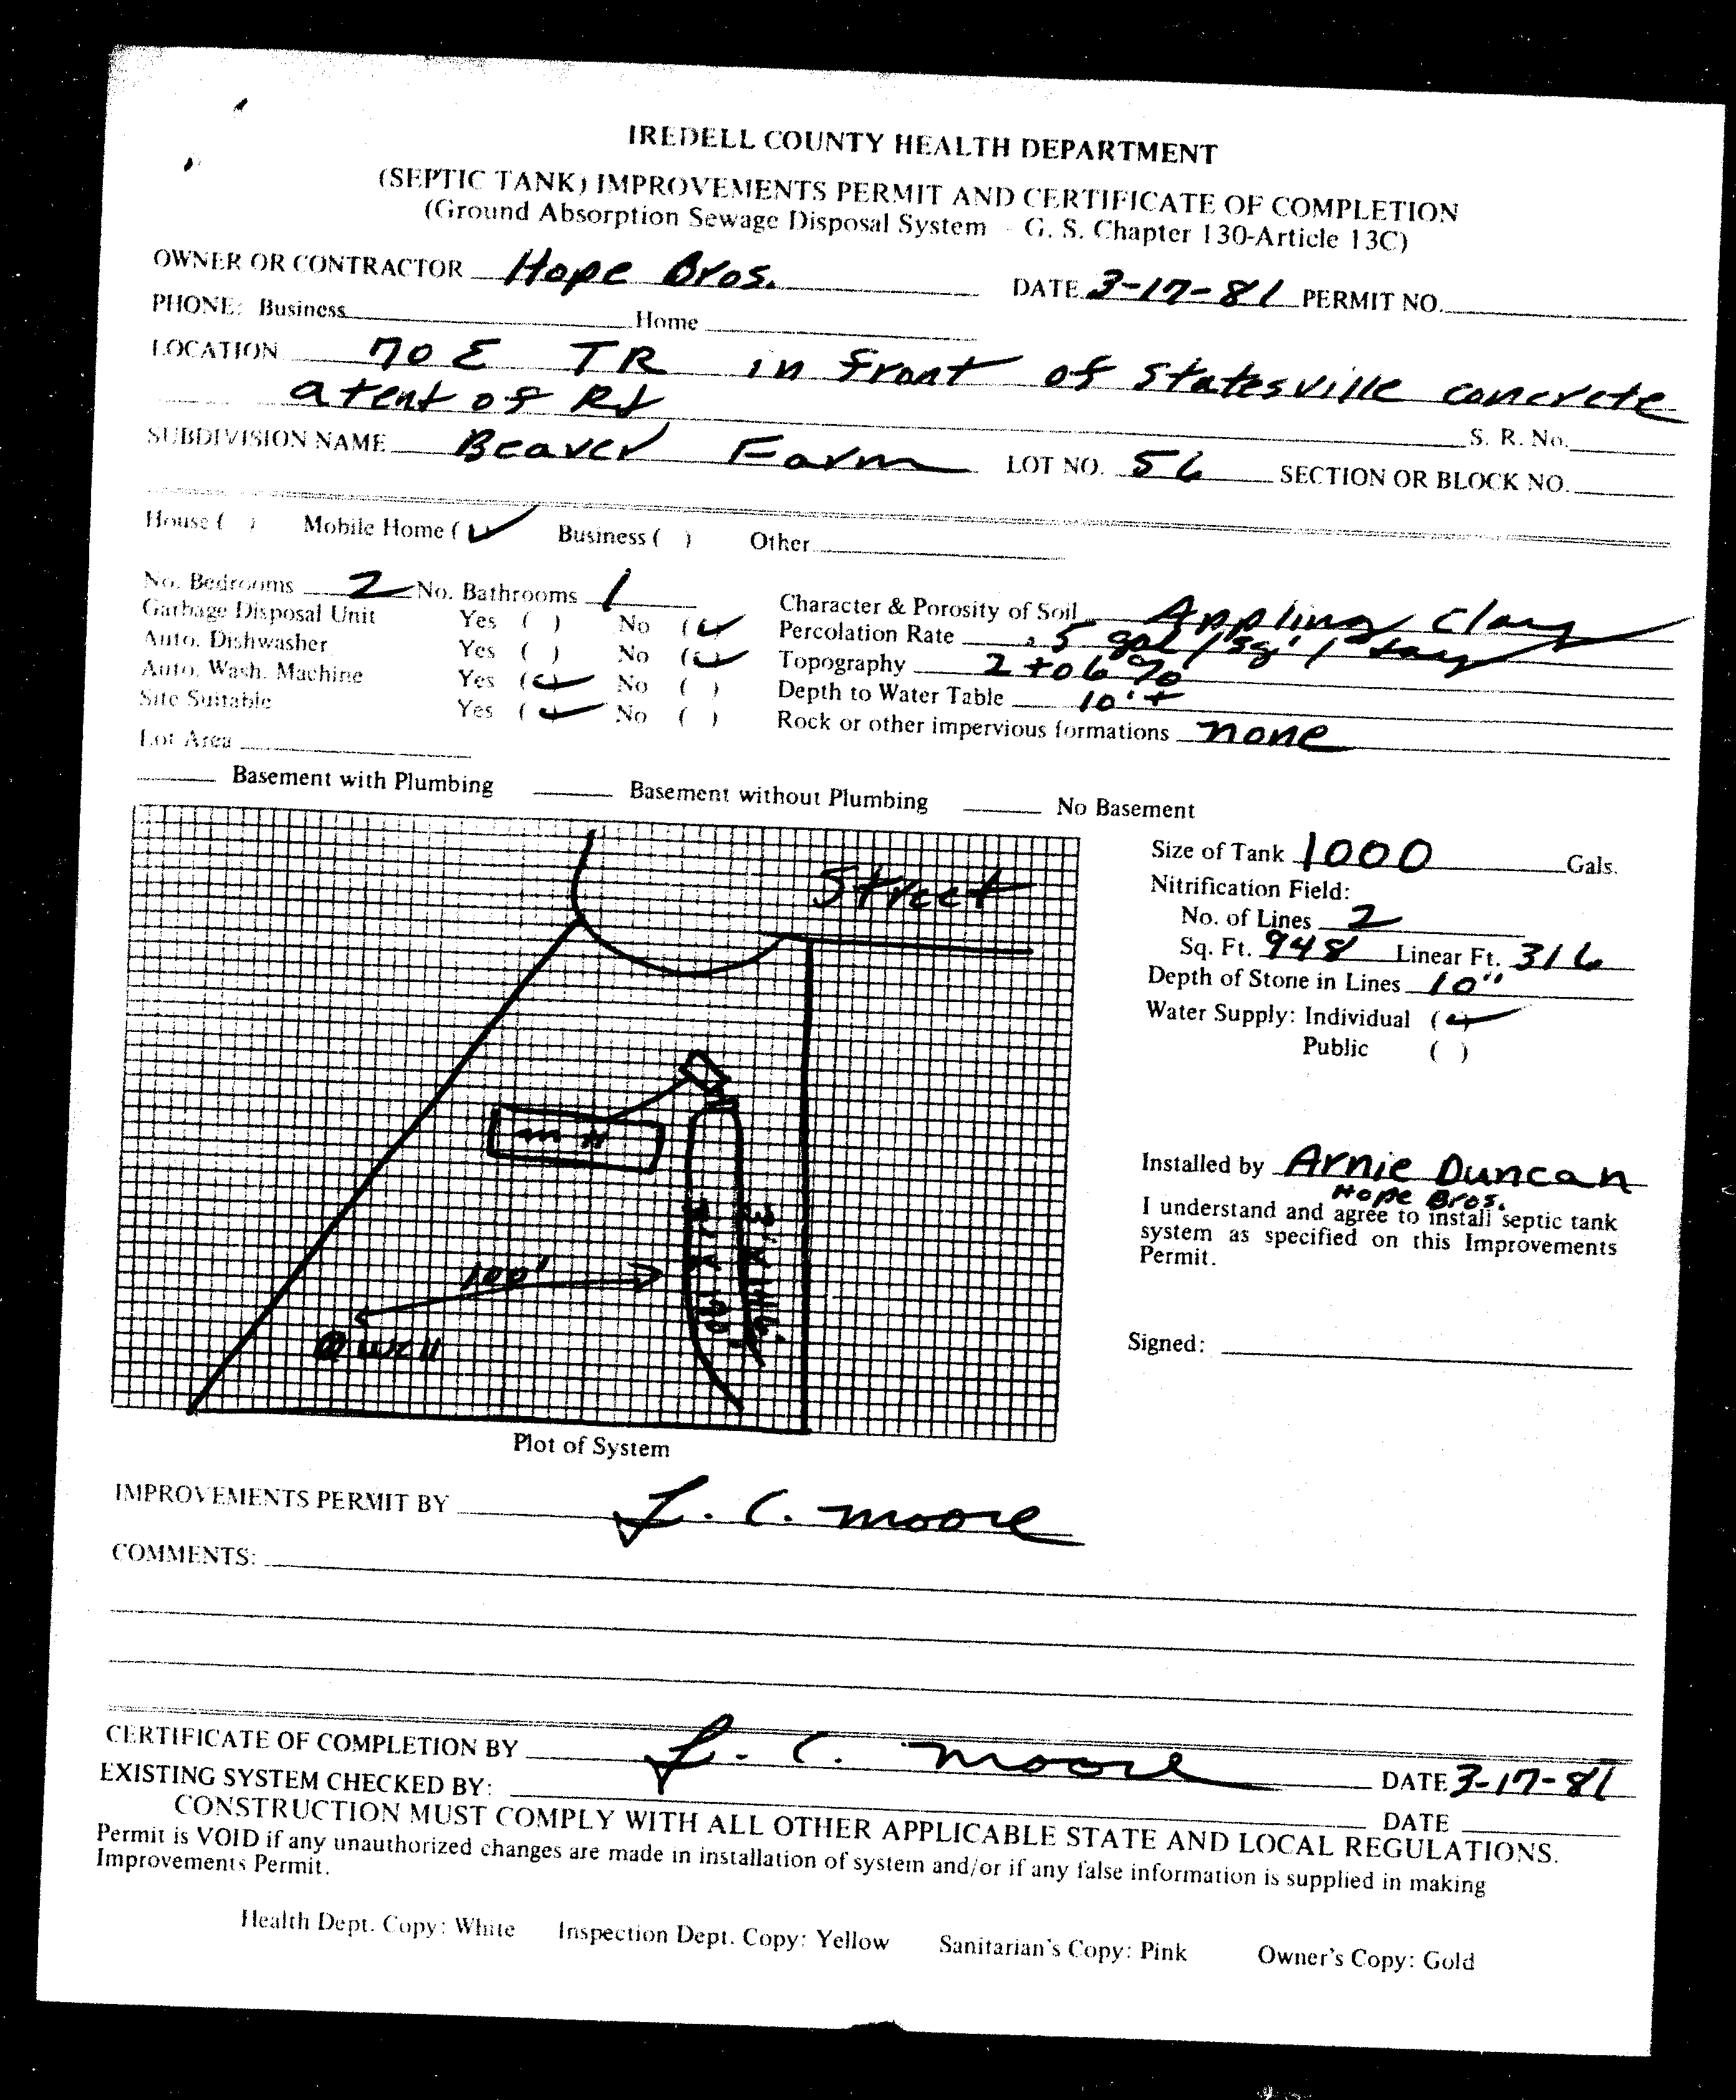 IREDELL COUNTY HEALTH DEPARTMENT
(SEPTIC TANK) IMPROVEMENTS PERMIT AND CERTIFICATE OF COMPLETION
(Ground Absorption Sewage Disposal System - G. S. Chapter 130-Article 13C)
OWNER OR CONTRACTOR Hope Bros. DATE 3-17-81 PERMIT NO.
PHONE: Business Home
LOCATION 70 E TR in front of Statesville concrete
at end of Rd
S. R. No.
SUBDIVISION NAME Beaver Farm LOT NO. 56 SECTION OR BLOCK NO.
House ( ) Mobile Home (✓) Business ( ) Other
No. Bedrooms 2 No. Bathrooms 1
Garbage Disposal Unit Yes ( ) No (✓)
Auto. Dishwasher Yes ( ) No (✓)
Auto. Wash. Machine Yes (✓) No ( )
Site Suitable Yes (✓) No ( )
Lot Area
Character & Porosity of Soil Appling Clay
Percolation Rate .5 gal/sq'/day
Topography 2 to 6%
Depth to Water Table 10'+
Rock or other impervious formations none
Basement with Plumbing Basement without Plumbing No Basement
Street
m H
3' X 146'
100'
@ well
Plot of System
Size of Tank 1000 Gals.
Nitrification Field:
No. of Lines 2
Sq. Ft. 948 Linear Ft. 316
Depth of Stone in Lines 10"
Water Supply: Individual (✓)
Public ( )
Installed by Arnie Duncan
Hope Bros.
I understand and agree to install septic tank
system as specified on this Improvements
Permit.
Signed:
IMPROVEMENTS PERMIT BY L. C. Moore
COMMENTS:
CERTIFICATE OF COMPLETION BY L. C. Moore DATE 3-17-81
EXISTING SYSTEM CHECKED BY: DATE
CONSTRUCTION MUST COMPLY WITH ALL OTHER APPLICABLE STATE AND LOCAL REGULATIONS.
Permit is VOID if any unauthorized changes are made in installation of system and/or if any false information is supplied in making
Improvements Permit.
Health Dept. Copy: White Inspection Dept. Copy: Yellow Sanitarian's Copy: Pink Owner's Copy: Gold